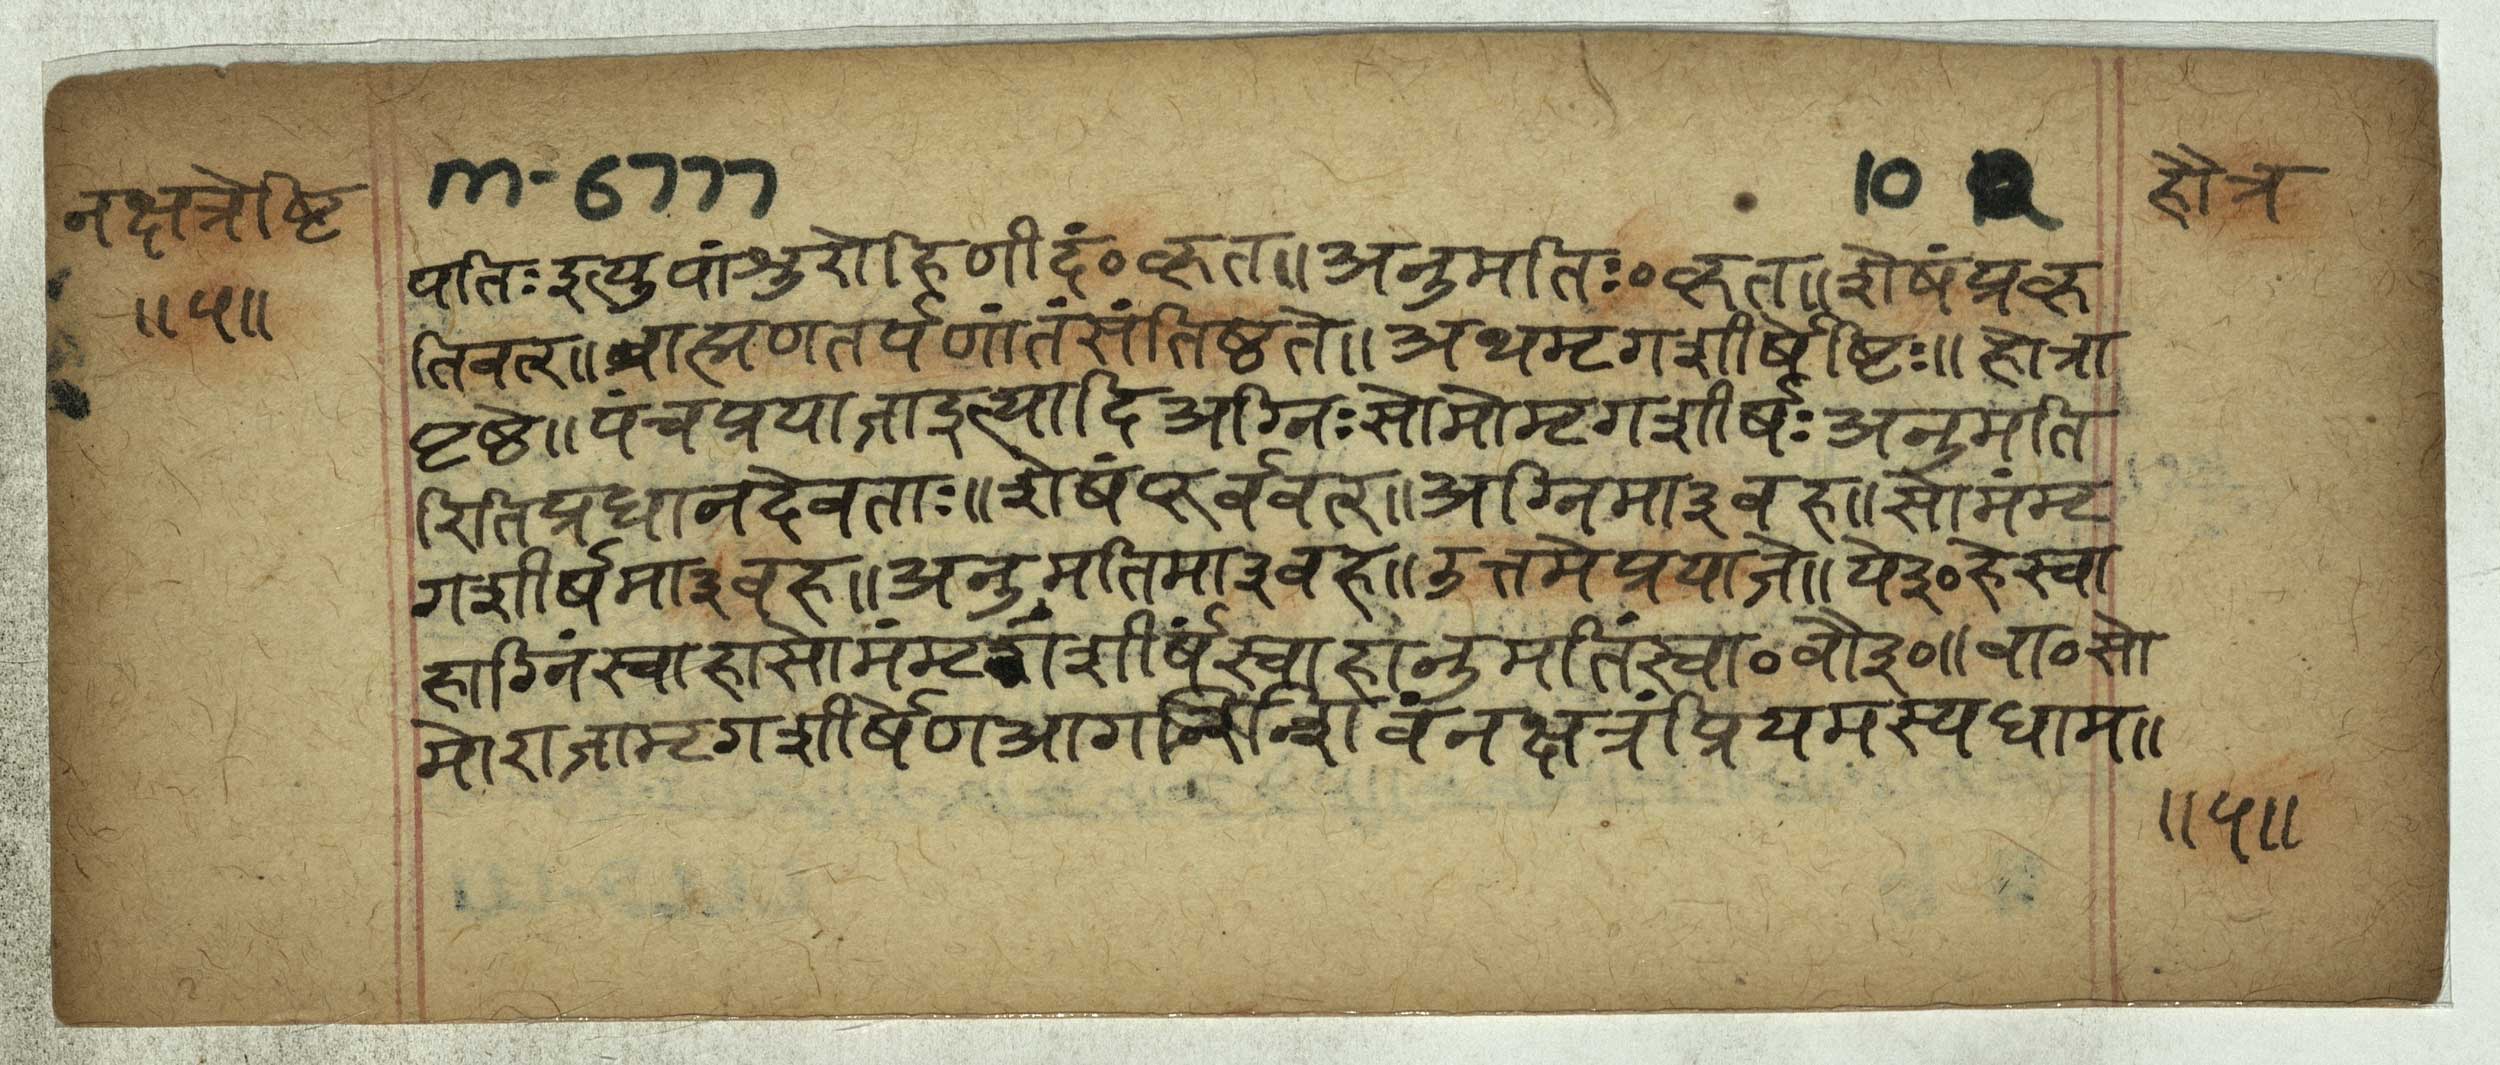 m-6777
10
नक्षत्रेष्टि
हौत्र
॥५॥
पतिः इत्युपांशुरोहिणीदं०कृत॥अनुमतिः०कृत॥शेषंप्रकृ
तिवत्॥ब्राह्मणतर्पणांतंसंतिष्ठते॥अथमृगशीर्षेष्टिः॥होत्रा
पृष्ठे॥पंचप्रयाजाइत्यादिअग्निःसोमोमृगशीर्षःअनुमति
रितिप्रधानदेवताः॥शेषंपूर्ववत्॥अग्निमा३वह॥सोमंमृ
गशीर्षमा३वह॥अनुमतिमा३वह॥उत्तमेप्रयाजे॥ये३०हेस्वा
हाग्निंस्वाहासोमंमृगशीर्षंस्वाहानुमतिंस्वा०वौ३०॥वा०सो
मोराजामृगशीर्षेणआगन्शिवंनक्षत्रंप्रियमस्यधाम॥
॥५॥